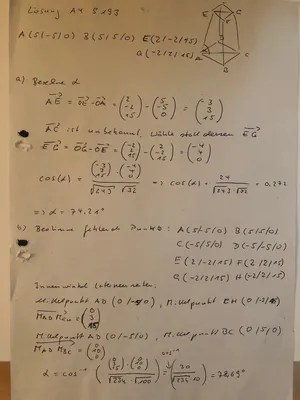 Lösung A4 S 193
A(5|-5|0) B(5|5|0) E(2|-2|15)
G(-2|2|15)
E H G F D C A B
a) Berechne α
AE = OE - OA = (2 -2 15) - (5 -5 0) = (-3 3 15)
AC ist unbekannt. Wähle stattdessen EG
EG = OG - OE = (-2 2 15) - (2 -2 15) = (-4 4 0)
cos(α) = (-3 3 15) · (-4 4 0) / √243 · √32 => cos(α) = 24 / √243 · √32 = 0,272
=> α = 74,21°
b) Bestimme fehlende Punkte: A(5|-5|0) B(5|5|0)
C(-5|5|0) D(-5|-5|0)
E(2|-2|15) F(2|2|15)
G(-2|2|15) H(-2|-2|15)
Innenwinkel Seitenfläche:
Mittelpunkt AD (0|-5|0), Mittelpunkt EH (0|-2|15)
M AD M EH = (0 3 15)
Mittelpunkt AD (0|-5|0), Mittelpunkt BC (0|5|0)
M AD M BC = (0 10 0)
α = cos⁻¹ ( (0 3 15) · (0 10 0) / √234 · √100 ) = cos⁻¹ 30 / √234 · 10 = 78,69°